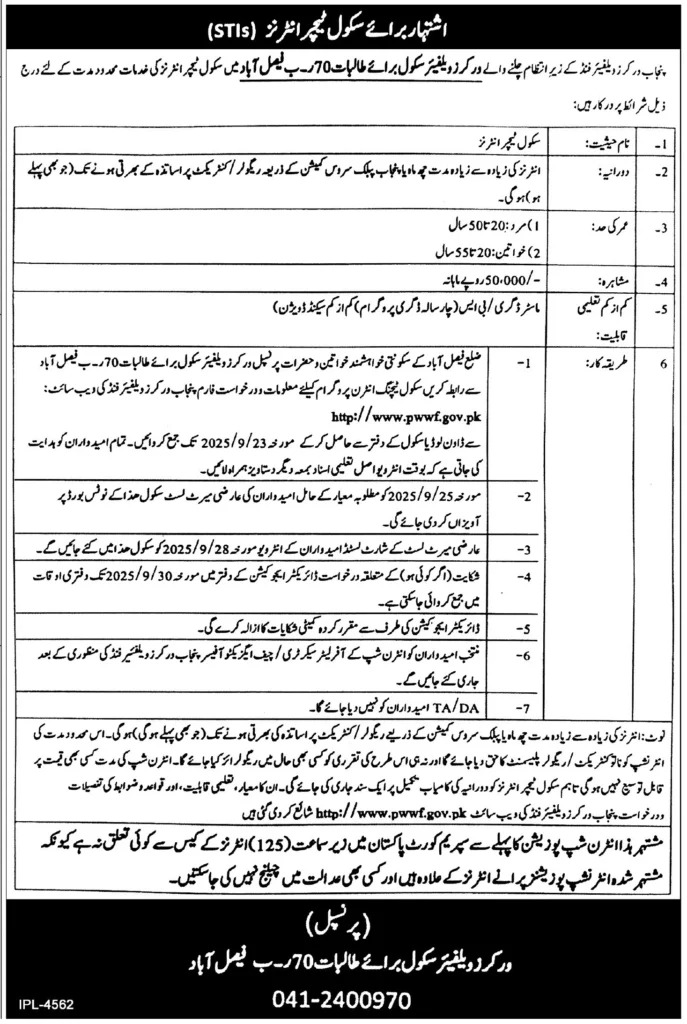 اشتہار برائے سکول ٹیچر انٹرنز (STIs)
پنجاب ورکرز ویلفیئر فنڈ کے زیر انتظام چلنے والے ورکرز ویلفیئر سکول برائے طالبات 70 ر۔ب فیصل آباد میں سکول ٹیچر انٹرنز کی خدمات محدود مدت کے لئے درج
ذیل شرائط پر درکار ہیں:
1- نام حیثیت: سکول ٹیچر انٹرنز
2- دورانیہ: انٹرنز کی زیادہ سے زیادہ مدت چھ ماہ یا پنجاب پبلک سروس کمیشن کے ذریعہ ریگولر/کنٹریکٹ پر اساتذہ کے بھرتی ہونے تک (جو بھی پہلے
ہو) ہو گی۔
3- عمر کی حد: 1) مرد: 20 تا 50 سال
2) خواتین: 20 تا 55 سال
4- مشاہرہ: 50,000/- روپے ماہانہ
5- کم از کم تعلیمی ماسٹر ڈگری/بی ایس (چار سالہ ڈگری پروگرام) کم از کم سیکنڈ ڈویژن)
قابلیت:
6 طریقہ کار: 1- ضلع فیصل آباد کے سکونتی خواہشمند خواتین و حضرات پرنسپل ورکرز ویلفیئر سکول برائے طالبات 70 ر۔ب فیصل آباد
سے رابطہ کریں سکول ٹیچنگ انٹرن پروگرام کیلئے معلومات و درخواست فارم پنجاب ورکرز ویلفیئر فنڈ کی ویب سائٹ:
http://www.pwwf.gov.pk
سے ڈاؤن لوڈ یا سکول کے دفتر سے حاصل کر کے مورخہ 2025/9/23 تک جمع کروائیں۔ تمام امیدواران کو ہدایت
کی جاتی ہے کہ بوقت انٹرویو اصل تعلیمی اسناد بمعہ دیگر دستاویز ہمراہ لائیں۔
2- مورخہ 2025/9/25 کو مطلوبہ معیار کے حامل امیدواران کی عارضی میرٹ لسٹ سکول ھذا کے نوٹس بورڈ پر
آویزاں کر دی جائے گی۔
3- عارضی میرٹ لسٹ کے شارٹ لسٹڈ امیدواران کے انٹرویو مورخہ 2025/9/28 کو سکول ھذا میں کئے جائیں گے۔
4- شکایت (اگر کوئی ہو) کے متعلقہ درخواست ڈائریکٹر ایجوکیشن کے دفتر میں مورخہ 2025/9/30 تک دفتری اوقات
میں جمع کروائی جا سکتی ہے۔
5- ڈائریکٹر ایجوکیشن کی طرف سے مقرر کردہ کمیٹی شکایات کا ازالہ کرے گی۔
6- منتخب امیدواران کو انٹرن شپ کے آفر لیٹر سیکرٹری/چیف ایگزیکٹو آفیسر پنجاب ورکرز ویلفیئر فنڈ کی منظوری کے بعد
جاری کئے جائیں گے۔
7- TA/DA امیدواران کو نہیں دیا جائے گا۔
نوٹ: انٹرنز کی زیادہ سے زیادہ مدت چھ ماہ یا پبلک سروس کمیشن کے ذریعے ریگولر/کنٹریکٹ پر اساتذہ کی بھرتی ہونے تک (جو بھی پہلے ہوگی) ہوگی۔ اس محدود مدت کی
انٹرنشپ کو نا تو کنٹریکٹ/ریگولر پلیسمنٹ کا حق دیا جائے گا اور نہ ہی اس طرح کی تقرری کو کسی بھی حال میں ریگولرائز کیا جائے گا۔ انٹرن شپ کی مدت کسی بھی قیمت پر
قابل توسیع نہیں ہو گی تاہم سکول ٹیچر انٹرنز کو دورانیہ کی کامیاب تکمیل پر ایک سند جاری کی جائے گی۔ ان کا معیار، تعلیمی قابلیت، اور قواعد و ضوابط کی تفصیلات
و درخواست پنجاب ورکرز ویلفیئر فنڈ کی ویب سائٹ http://www.pwwf.gov.pk شائع کر دی گئی ہیں
مشتہر ہذا انٹرن شپ پوزیشن کا پہلے سے سپریم کورٹ پاکستان میں زیر سماعت (125) انٹرنز کے کیس سے کوئی تعلق نہ ہے کیونکہ
مشتہر شدہ انٹرنشپ پوزیشنز پرانے انٹرنز کے علاوہ ہیں اور کسی بھی عدالت میں چیلنج نہیں کی جاسکتیں۔
(پرنسپل)
ورکرز ویلفیئر سکول برائے طالبات 70 ر۔ب فیصل آباد
041-2400970
IPL-4562